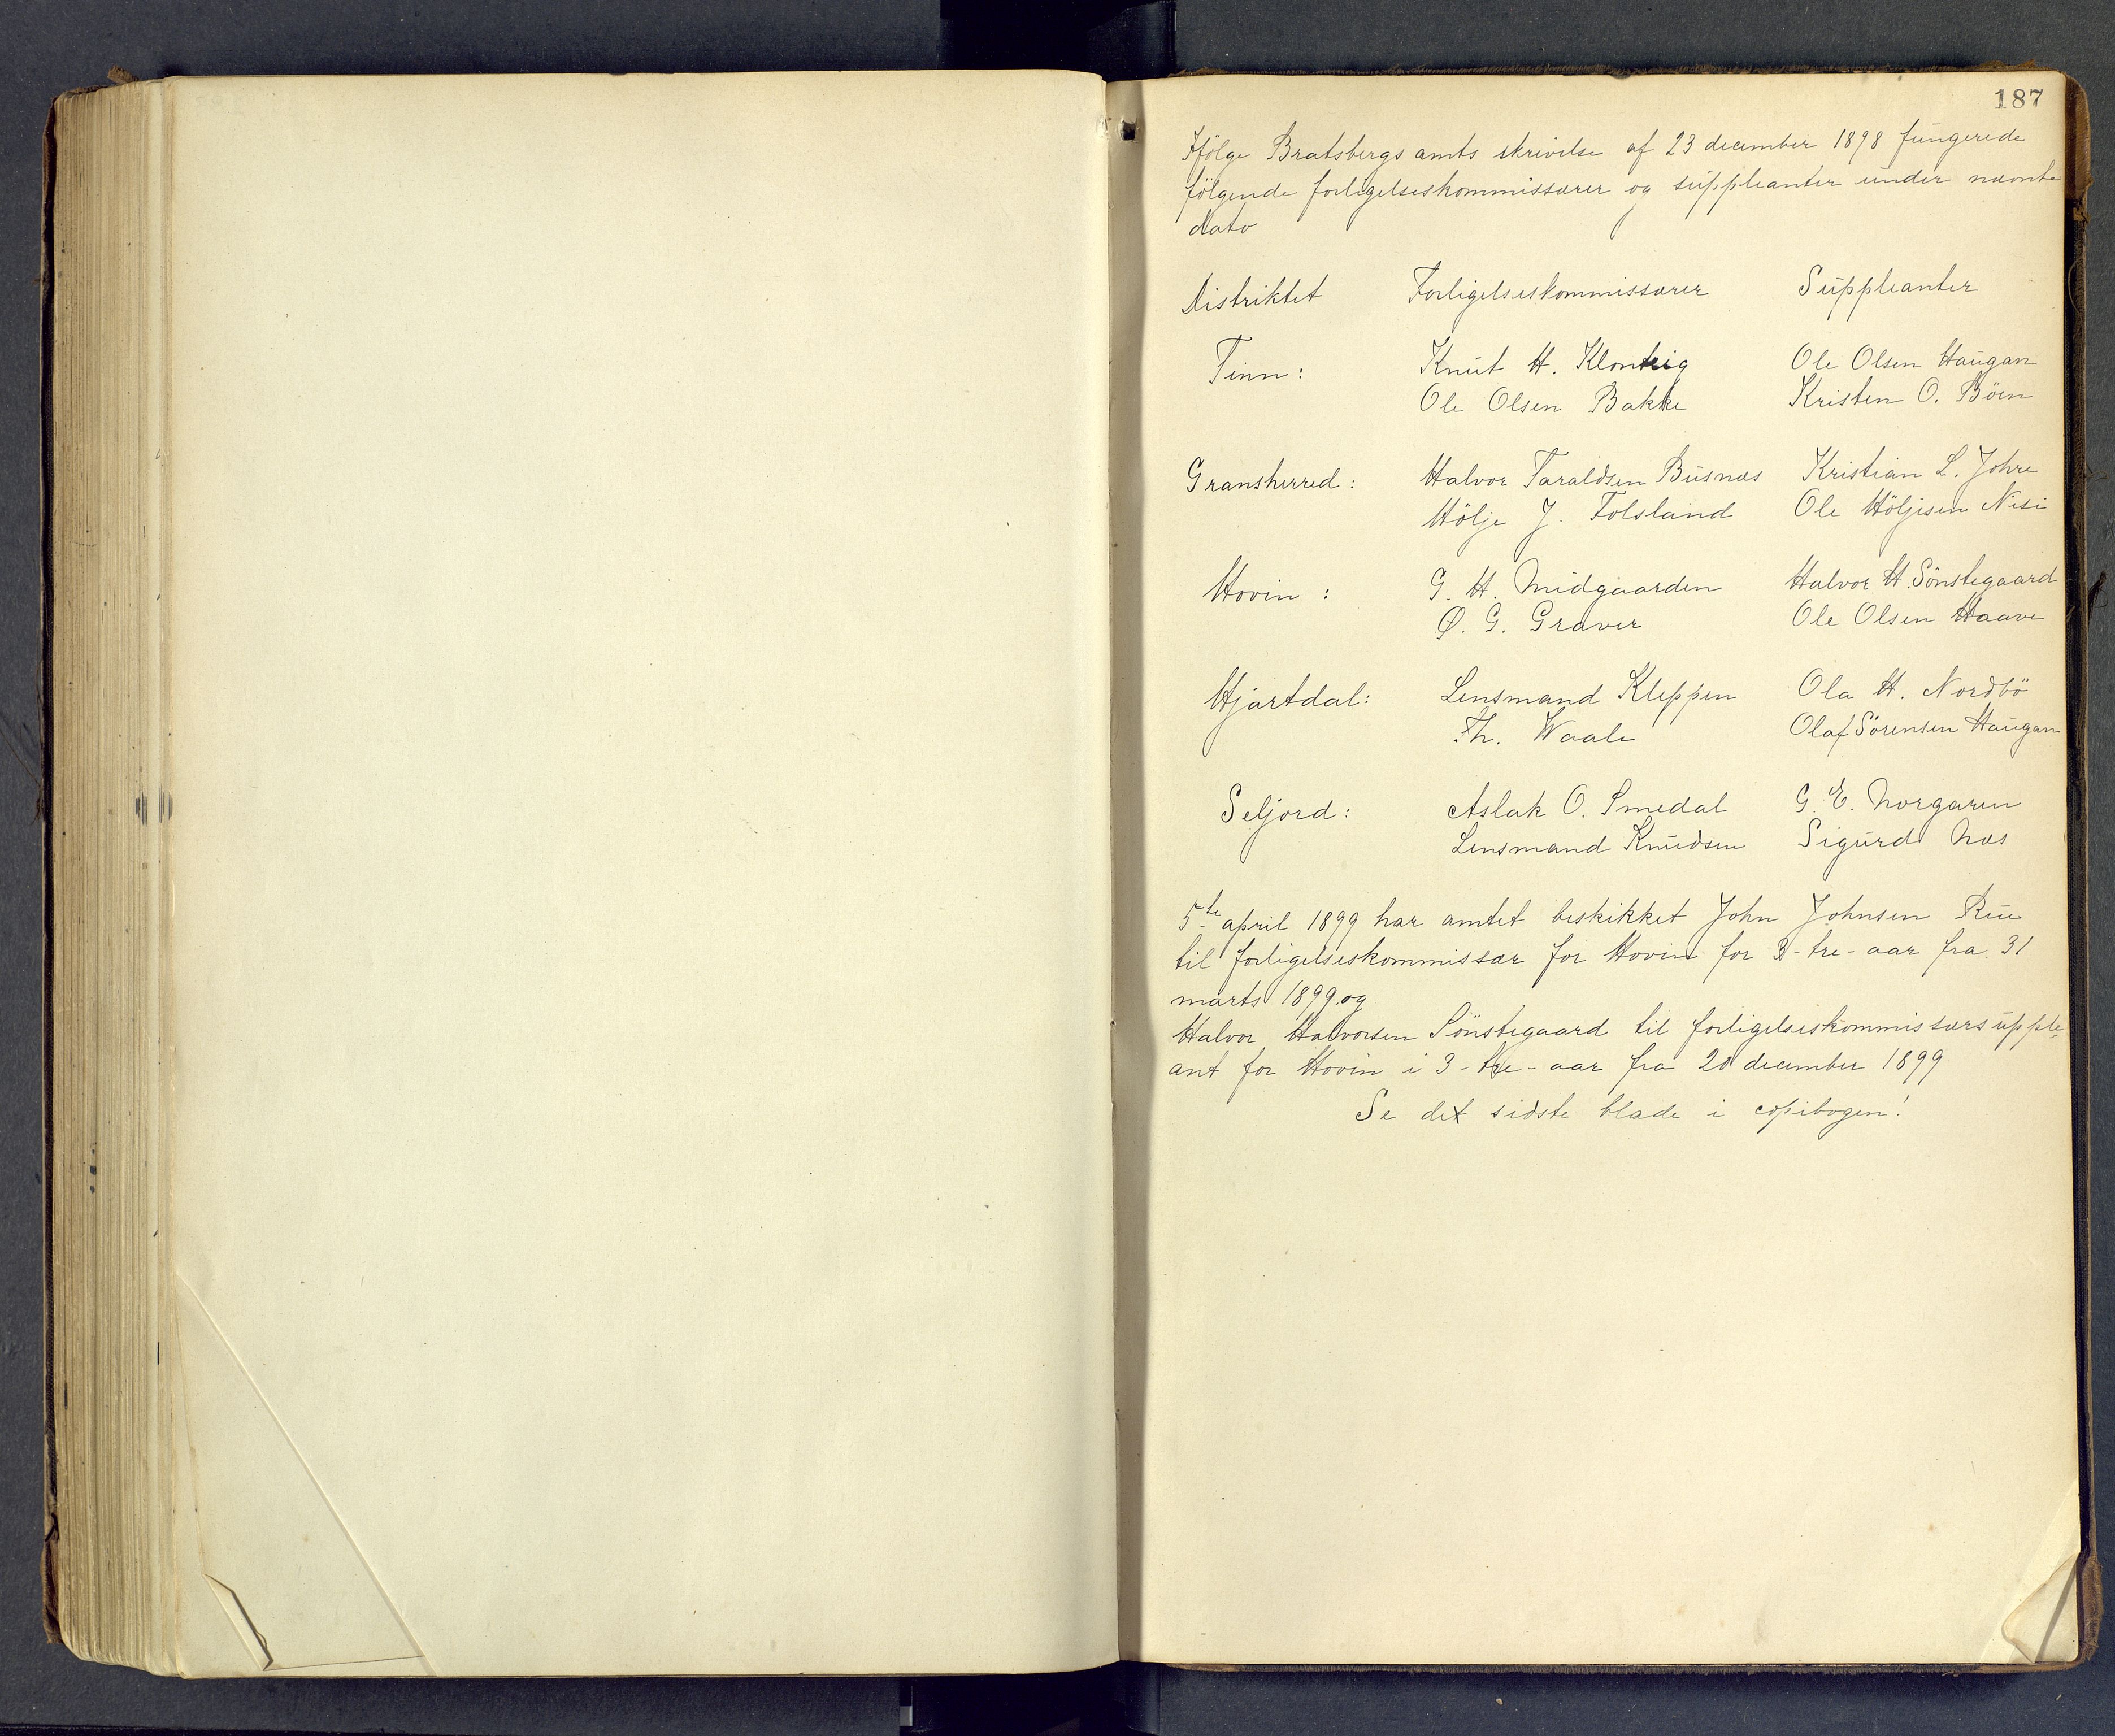 187
Ifölge Bratsbergs amts skrivelse af 23 december 1898 fungerede
fölgende forligelseskommissærer og suppleanter under nævnte
dato
Distriktet Forligelseskommissærer Suppleanter
Tinn: Knut H. Ole Olsen Haugan
Ole Olsen Bakke Kristen O. Böen
Gransherred: Halvor Taraldsen Busnæs Kristian L. Johre
Hölje J. Folsland Ole Höljesen Nisi
Hovin: G. H. Midgaarden Halvor H. Sönstegaard
Ø. G. Graver Ole Olsen Haave
Hjartdal: Lensmand Kleppen Ola H. Nordbö
Th. Waale Olaf Sörensen Haugan
Seljord: Aslak O. Smedal G. E. Norgaren
Lensmand Knudsen Sigurd Næs
5te april 1899 har amtet beskikket John Johnsen Rue
til forligelseskommissær for Hovin for 3-tre-aar fra 31
marts 1899 og
Halvor Halvorsen Sönstegaard til forligelseskommissærsupple-
ant for Hovin i 3-tre-aar fra 20 december 1899
Se det sidste blade i copibogen!